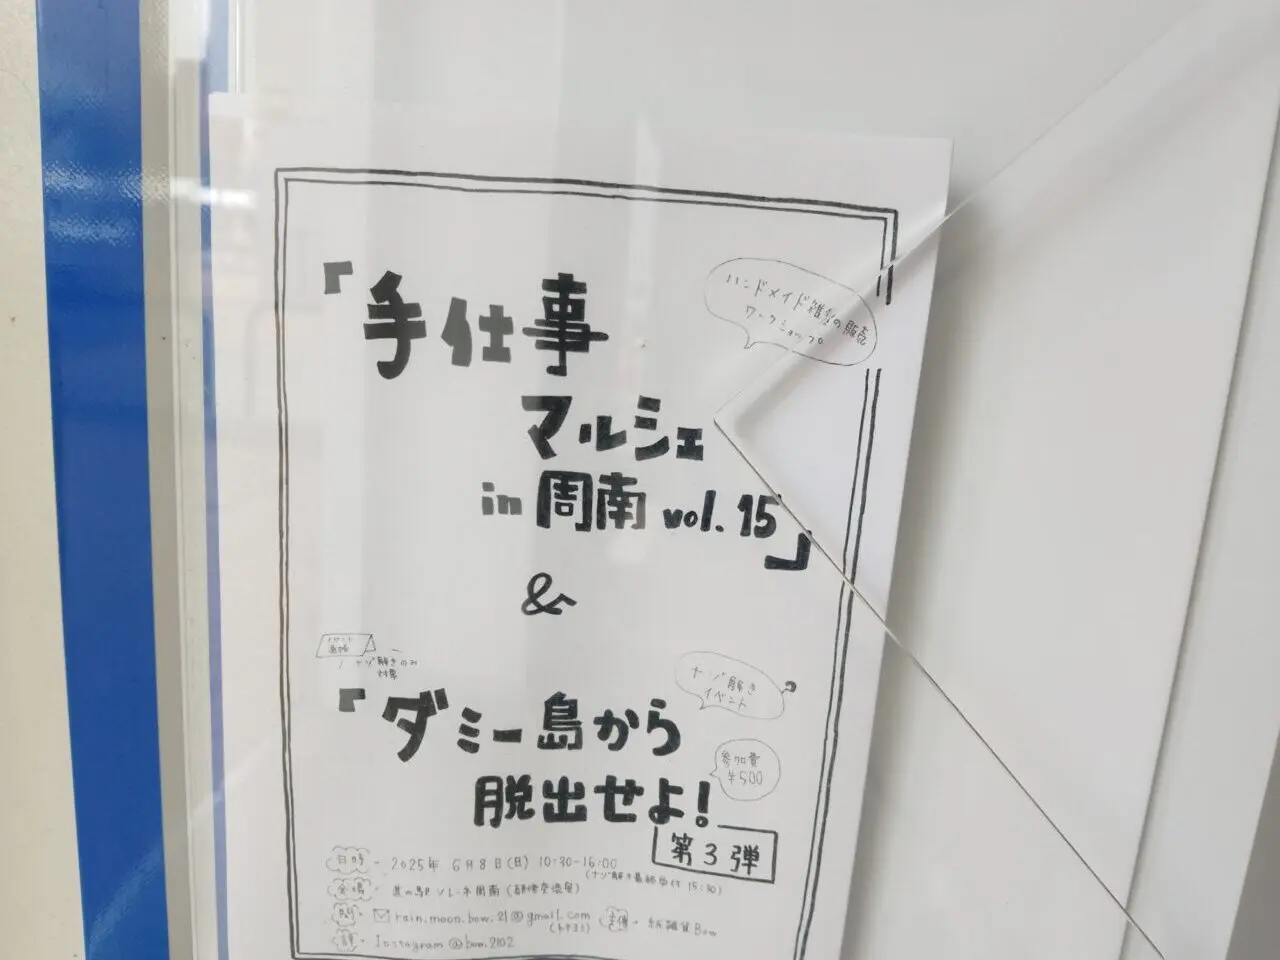 ハンドメイド雑貨の販売
ワークショップ
「手仕事
マルシェ
in 周南 vol. 15」
&
イベント
ナゾ解きのみ
対象
ナゾ解き
イベント
「ダミー島から
脱出せよ!
参加費
¥500
第3弾
日時 - 2025年 6月8日(日) 10:30-16:00
(ナゾ解き最終受付 15:30)
会場 - 道の駅 ソレーネ周南 (研修交流室)
問 - rain.moon.bow.21@gmail.com
主催 - 紙雑貨Bow
詳 - Instagram @bow.2102